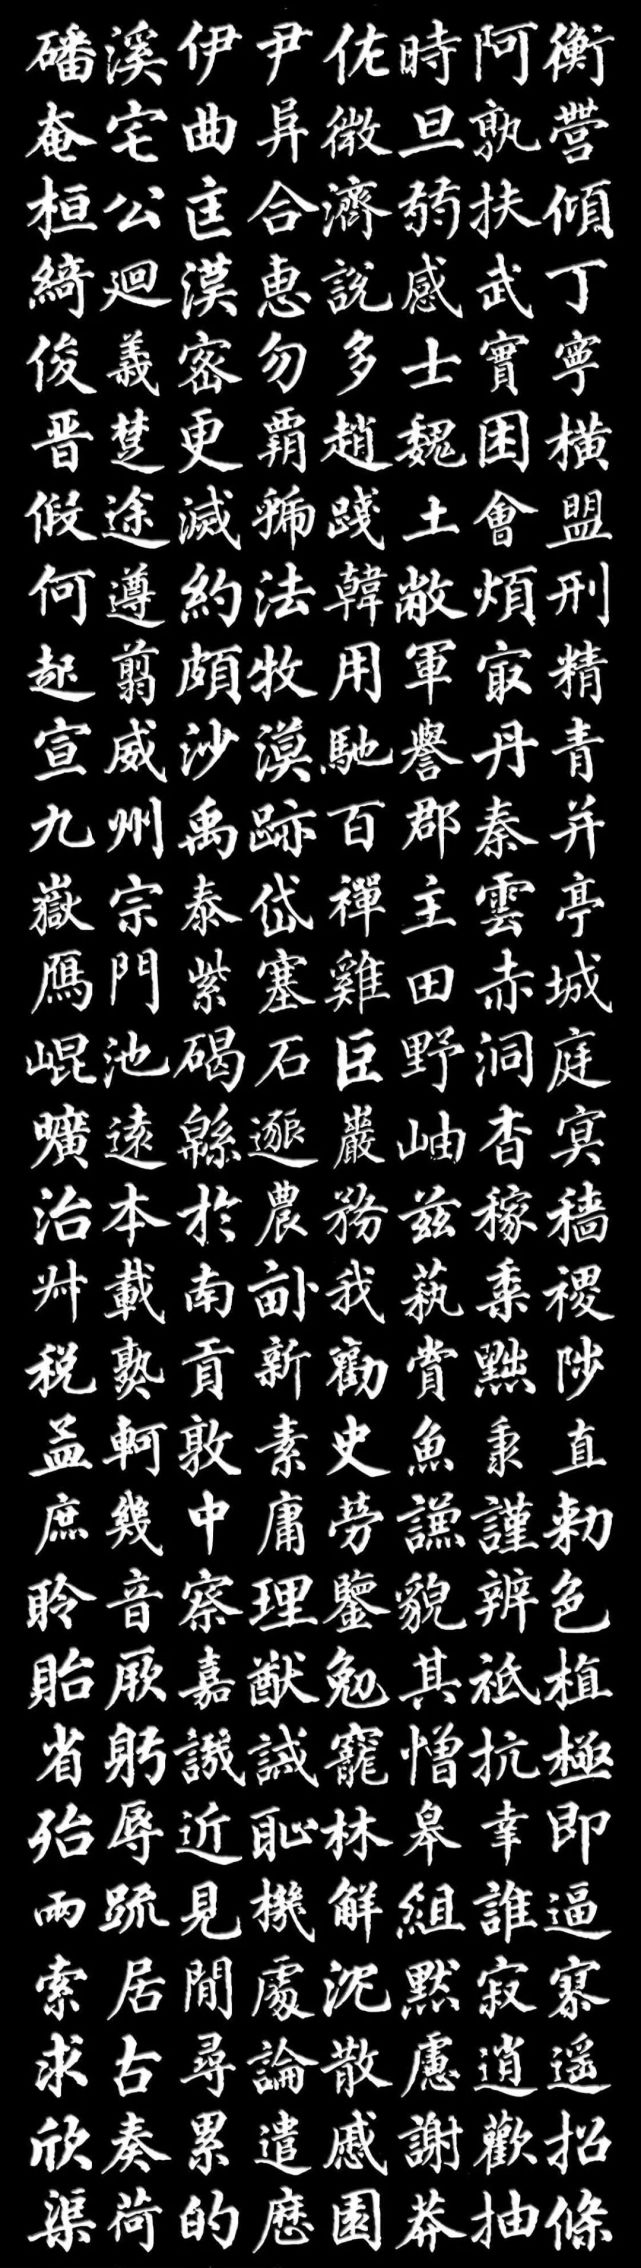 磻溪伊尹佐時阿衡
奄宅曲阜微旦孰營
桓公匡合濟弱扶傾
綺迴漢惠說感武丁
俊義密勿多士實寧
晋楚更覇趙魏困橫
假途滅虢踐土會盟
何遵約法韓敝煩刑
起翦頗牧用軍最精
宣威沙漠馳譽丹青
九州禹跡百郡秦并
嶽宗泰岱禪主雲亭
鴈門紫塞雞田赤城
崐池碣石巨野洞庭
曠遠緜邈巖岫杳冥
治本於農務兹稼穡
俶載南畝我藝黍稷
税熟貢新勸賞黜陟
孟軻敦素史魚秉直
庶幾中庸勞謙謹勅
聆音察理鑒貌辨色
貽厥嘉猷勉其祗植
省躬譏誡寵憎抗極
殆辱近恥林皋幸即
兩疏見機解組誰逼
索居閒處沉默寂寥
求古尋論散慮逍遥
欣奏累遣慼謝歡招
渠荷的歷園莽抽條